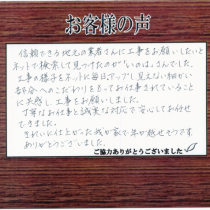 お客様の声
信頼できる地元の業者さんに工事をお願いしたいと
ネットで検索して見つけたのが「いのは」さんでした。
工事の様子をネットに毎日アップし見えない細かい
部分へのこだわりをもってお仕事されていること
に共感し、工事をお願いしました。
丁寧なお仕事と誠実な対応で安心してお任せ
できました。
きれいに仕上がった我が家で年が越せそうです
ありがとうございました。
ご協力ありがとうございました